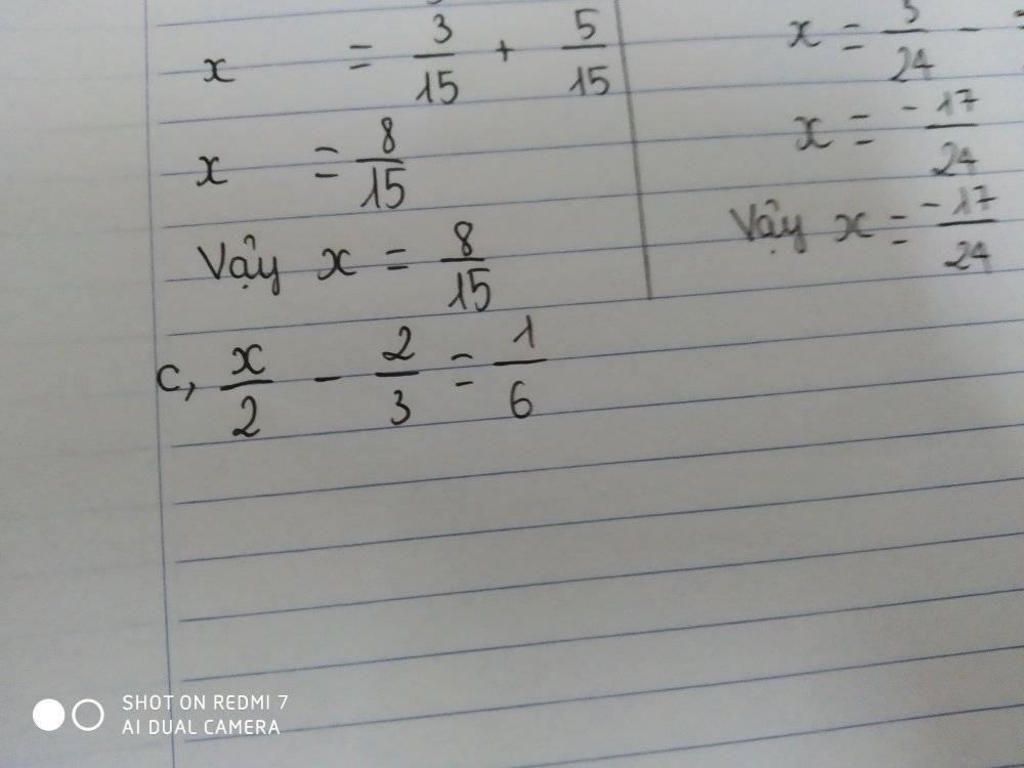 x = 3/15 + 5/15
x = 8/15
Vậy x = 8/15
x = 5/24 -
x = -17/24
Vậy x = -17/24
c, x/2 - 2/3 = 1/6
SHOT ON REDMI 7
AI DUAL CAMERA